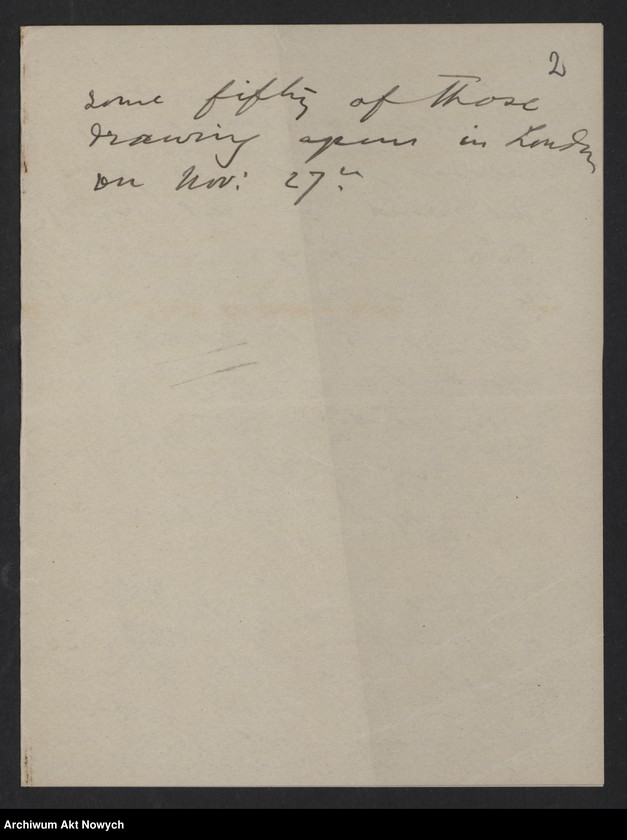 2
some fifty of those
drawing opens in London
on Nov: 27th
Archiwum Akt Nowych